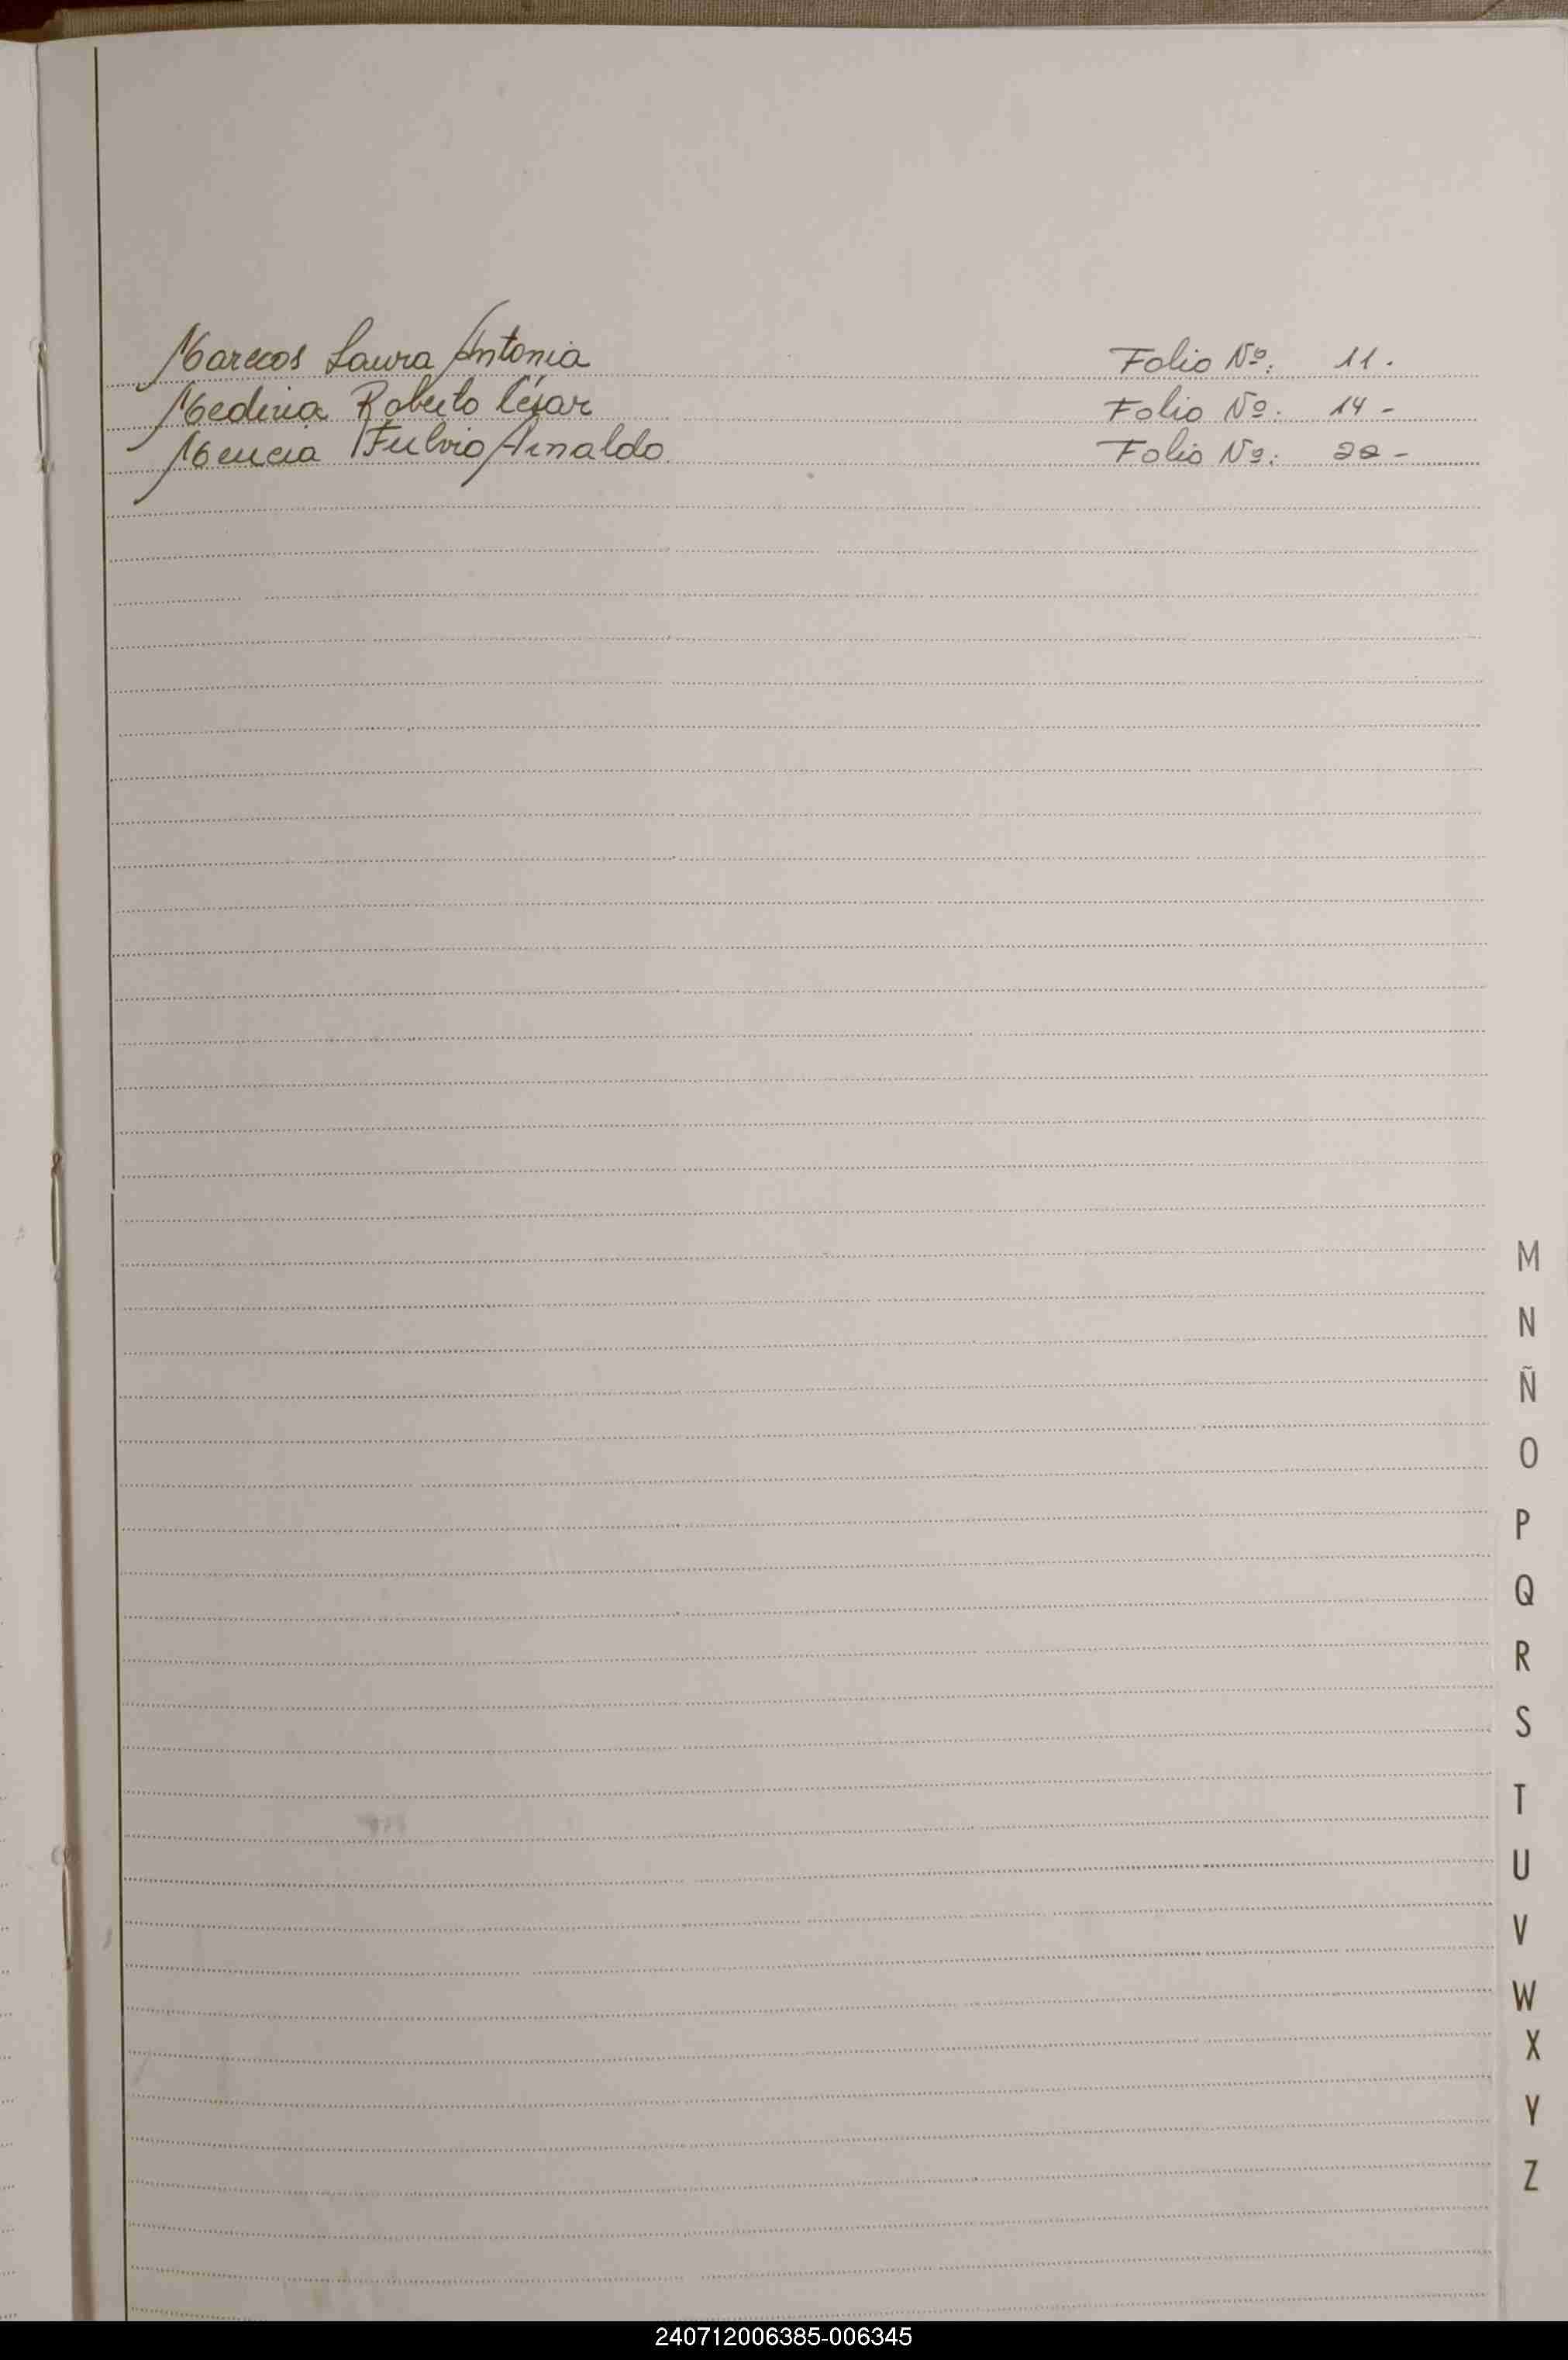 Marecos Laura Antonia Folio Nº: 11.
Medina Roberto César Folio Nº: 14 -
Mencia Fulvio Arnaldo Folio Nº: 22 -
M
N
Ñ
O
P
Q
R
S
T
U
V
W
X
Y
Z
240712006385-006345